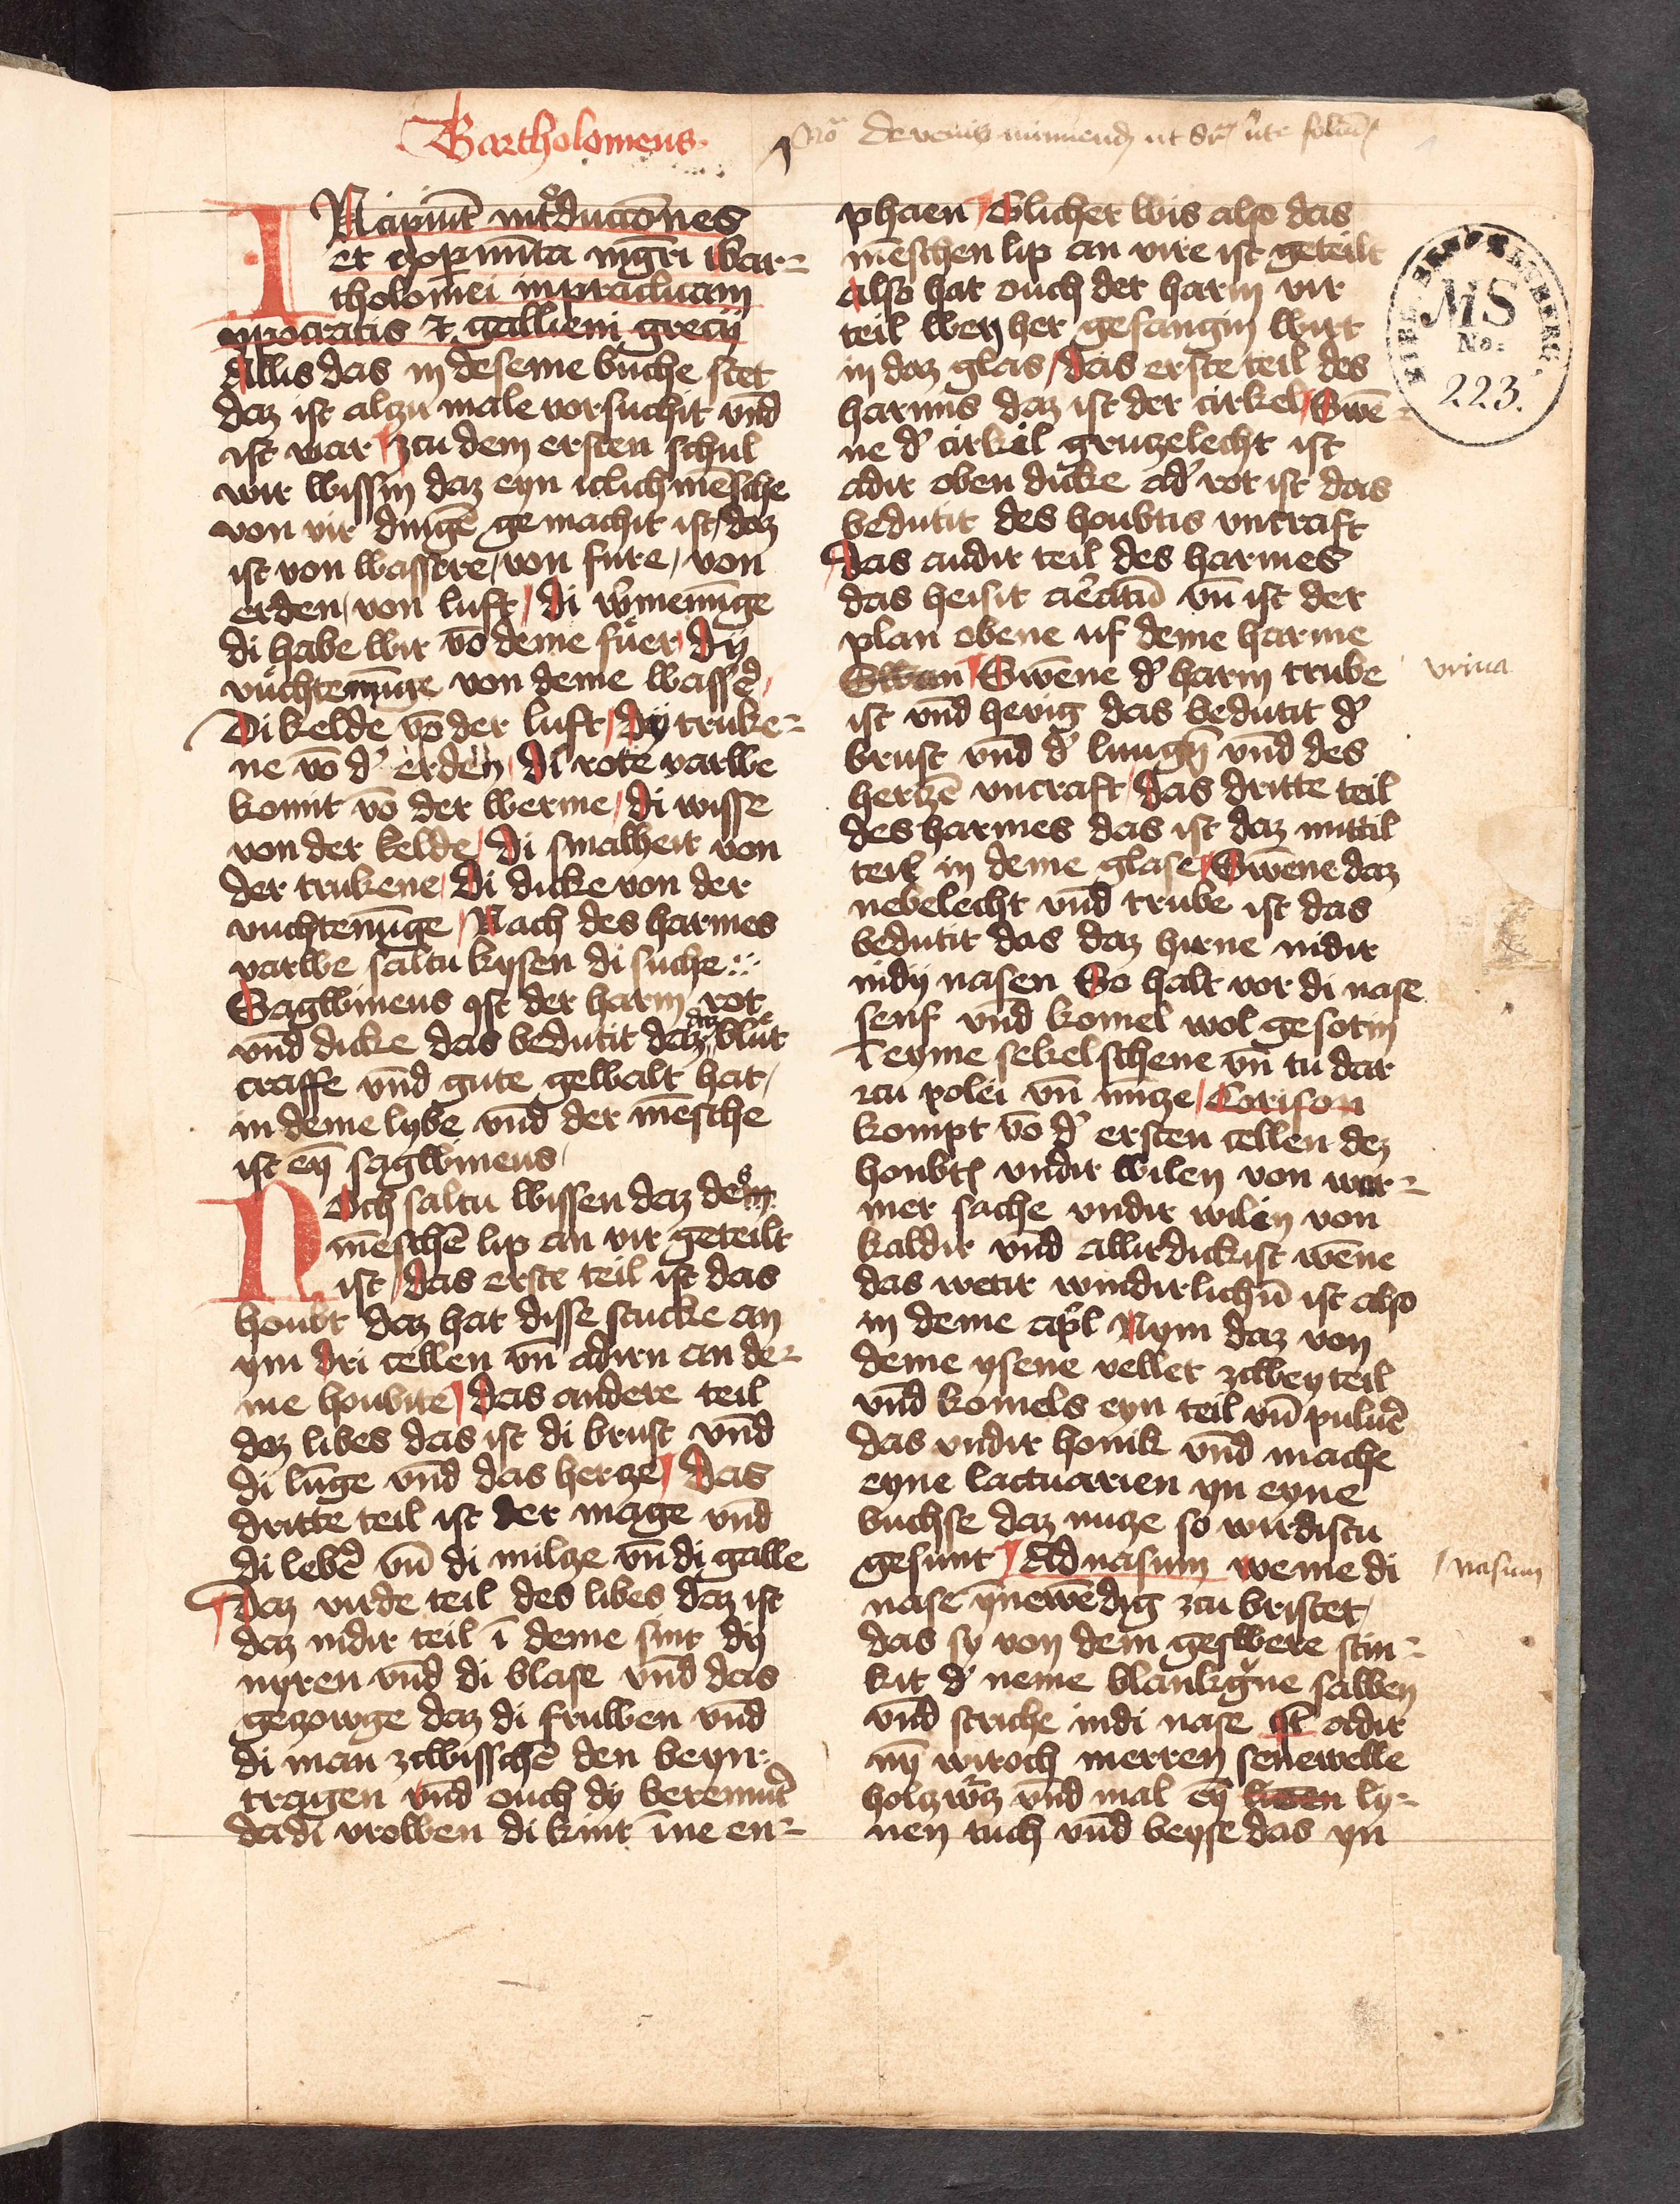 Bartholomeus.
De venis minuend
INcipiūt introductōnes
et experimēta mgrī Bar-
tholomei in practicam
ypocratis et gallieni grecij
Allis das in deseme buche stet
daz ist alczu male vorsuchit vnd
ist war / zcu dem ersten schul
wir wissin daz eyn iclich mēsche
von vir dingē gemachit ist / daz
ist von wassere / von fure / von
erden / von luft / di wermenūge
di habe wir vō deme fuer / Dy
vuchtenūge von deme wasser /
Di kelde vō der luft / Dy truke-
ne vō d' erden / di rote varwe
komit vō der werme / di wisse
von der kelde / di smalheit von
der trukene / Di dicke von der
vuchtenūge / Nach des harmes
varwe saltu kysen di suche
Sagwineus ist der harm rot
vnd dicke das bedutit daz daz blut
craffe vnd gute gewalt hat /
in deme lybe vnd der mēsche
ist eȳ sagwineus /
NOch saltu wissen daz des
mēschē lip an vir geteilt
ist / das erste teil ist das
houbt daz hat disse stucke an
ym dri cellen vn̄ adirn an de-
me houbite / das andere teil
dez libes das ist di brust vnd
di lūge vnd das hertze / das
dritte teil ist der mage vnd
di leber vn̄ di milze vn̄ di galle
Daz virde teil des libes daz ist
daz nidir teil ī deme sint dy
nyren vnd di blase vnd das
geczowge daz di fruwen vnd
di man zcwisschē den beyn
tragen vnd ouch dy bermut'
da dī vrowen di kint īne en-
phaen / Glicher wis also das
mēschen lip an vire ist geteilt
also hat ouch der harm vir
teil wen her gefangin wirt
in daz glas / das erste teil des
harmis daz ist der cirkel / Swē-
ne d' cirkil gruzelecht ist
adir oben dicke ad' rot ist das
bedutit des houbtis vncraft
das andir teil des harmes
das heisit vn̄ ist der
plan obene uf deme harme
Swan / Swēne d' harm trube
ist vnd hevig das bedutit d'
brust vnd d' lungē vnd des
hertzē vncraft / das dritte teil
des harmes das ist daz mittil
teil in deme glase / Swēne daz
nebelecht vnd trube ist das
bedutit das daz hirne nidir
in dy nasen So halt vor di nase
senf vnd komel wol gesotin
ī eyme sekelschene vn̄ tu dar
zcu polei vn̄ mīcze / Corison
kompt vō d' ersten cellen dez
houbt' vndir wilen von war-
mer sache vndir wilen von
kaldir vnd allirdickist wēne
das wetir windirlichn̄ ist also
in deme apr̄l Nym daz von
deme ysene vellet zcwey teil
vnd komels eyn teil vn̄ puluer
das vndir honik vnd mache
eyne lactuarien yn eyne
buchse daz nuze so wirdistu
gesunt / Ad nasum weme di
nase ȳnewēdig zcu bristet /
das sy von dem geswere stin-
kit d' neme blankgue salben
vnd striche in di nase adir
nȳ wiroch merren senewelle
holczwurz vnd mal eȳ ly-
nen tuch vnd beyse das yn
vrina
nasum
MS
No.
223.